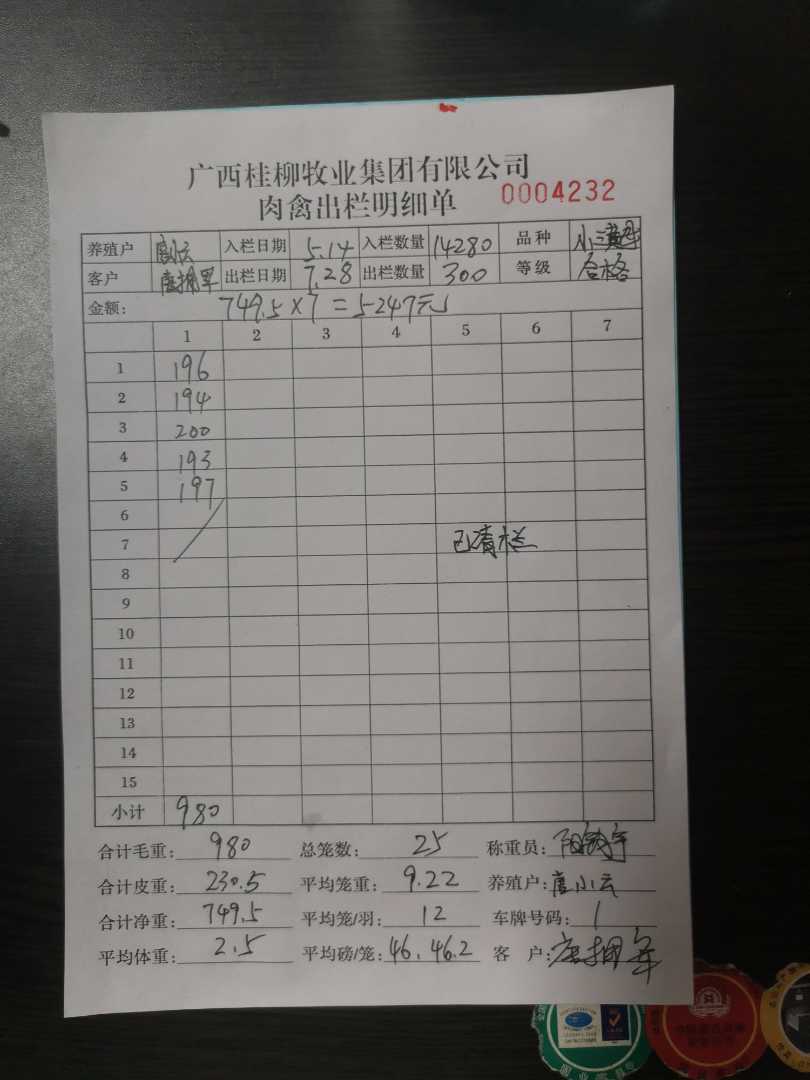 广西桂柳牧业集团有限公司
肉禽出栏明细单 0004232
养殖户 唐小云 入栏日期 5.14 入栏数量 14280 品种 小
客户 唐拥军 出栏日期 7.28 出栏数量 300 等级 合格
金额: 749.5×7=5247元
1 2 3 4 5 6 7
1 196
2 194
3 200
4 193
5 197
6
7 已清栏
8
9
10
11
12
13
14
15
小计 980
合计毛重: 980 总笼数: 25 称重员:
合计皮重: 230.5 平均笼重: 9.22 养殖户: 唐小云
合计净重: 749.5 平均笼/羽: 12 车牌号码: /
平均体重: 2.5 平均磅/笼: 46.46.2 客 户: 唐拥军